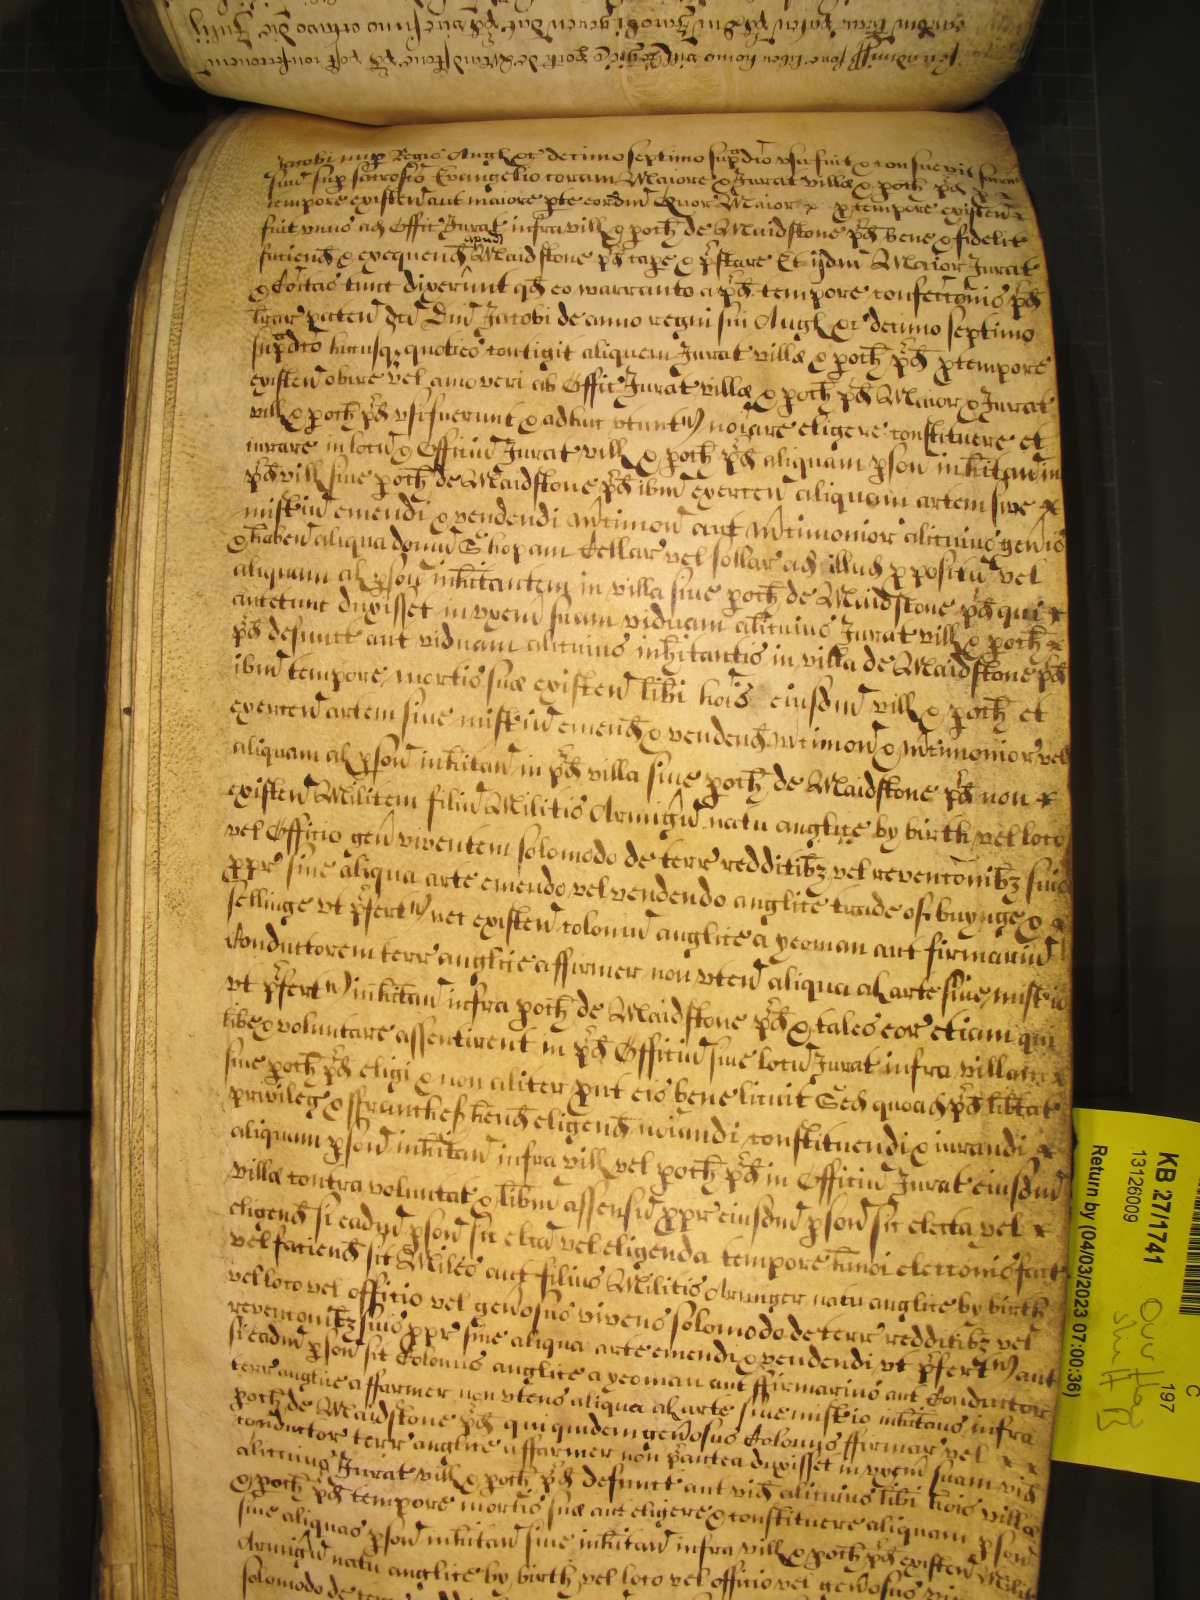 Jacobi nup Regis Angl &c decimo septimo supadco usu fuit & consuevit
sup sacrosco Evangelio coram Maiore & Jurat villæ & poch pd
tempore existen aut maiore pte eordm Quor Maior p tempore existen
fuit unus ad Offic Jurat infra vill & poch de Maidstone pd bene & fidelit
faciend & exequend apud Maidstone pd cape & pstare Et ijdm Maior Jurat
& Coitas tunc dixerunt qd eo warranto a pd tempore confecconis pd
lrar paten dci Dni Jacobi de anno regni sui Angl &c decimo septimo
supadco hucusq quoties contigit aliquem Jurat villæ & poch pd p tempore
existen obire vel amoveri ab Offic Jurat villæ & poch pd Maior & Jurat
vill & poch pd usi fuerunt & adhuc utuntr noiare eligere constituere et
iurare in locu & Officiu Jurat vill & poch pd aliquam pson inhitan in
pd vill sive poch de Maidstone pd ibm exercen aliquam artem sive
misteriu emendi & vendendi mcimon aut mcimonior alicuius genis
& haben aliqua domu Shopam Cellar vel sollar ad illud p positu vel
aliquam al pson inhitantem in villa sive poch de Maidstone pd qui
antetunc duxisset in uxem suam viduam alicuius Jurat vill & poch
pd defunct aut viduam alicuius inhitantis in villa de Maidstone pd
ibm tempore mortis suæ existen libi hois eiusdm vill & poch et
exercen artem sive misteriu emend & vendend mcimon & mcimonior vel
aliquam al pson inhitan in pd villa sive poch de Maidstone pd non
existen Militem filiu Militis Armigu natu anglice by birth vel loco
vel Officio gen viventem solomodo de terr redditibz vel revenconibz suis
ppr sine aliqua arte emendo vel vendendo anglice trade of buyinge &
sellinge ut pfertr nec existen colonu anglice a yeoman aut firmariu
Conductorem terr anglice a ffirmer non uten aliqua al arte sive misterio
ut pfertr inhitan infra poch de Maidstone pd & tales eor etiam qui
libe & voluntare assentirent in pd Officiu sive locu Jurat infra villam
sive poch pd eligi & non aliter put eis bene licuit Sed quoad pd libtat
privileg & ffranches hend eligend noiandi constituendi & iurandi
aliquam pson inhitan infra vill vel poch pd in Officiu Jurat eiusdm
villæ contra voluntat & libm assensu ppr eiusdm pson sic electa vel
eligend si eadm pson sic elca vel eligenda tempore hmoi elecconis fact
vel faciend sit Miles aut filius Militis Armiger natu anglice by birth
vel loco vel officio vel genosus vivens solomodo de terr redditibz vel
revenconibz suis ppr sine aliqua arte emendi & vendendi ut pfertr aut
si eadm pson sit Colonus anglice a yeoman aut ffirmarius aut Conductor
terr anglice a ffarmer non utens aliqua al arte sive misterio inhitans infra
poch de Maidstone pd qui quidem genosus Colonus ffirmar vel
conductor terr anglice a ffarmer non pantea duxisset in uxem suam vid
alicuius Jurat vill & poch pd defunct aut vid alicuius libi hois villæ
& poch pd tempore mortis suæ aut eligere & constituere aliquam pson
sive aliquas pson inhitan sive inhitan infra vill & poch pd existen Milit
Armigu natu anglice by birth vel loco vel officio vel genosus
solomodo de terr
KB 27/1741
13126009
Return by (04/03/2023 07:00:36)
C
197